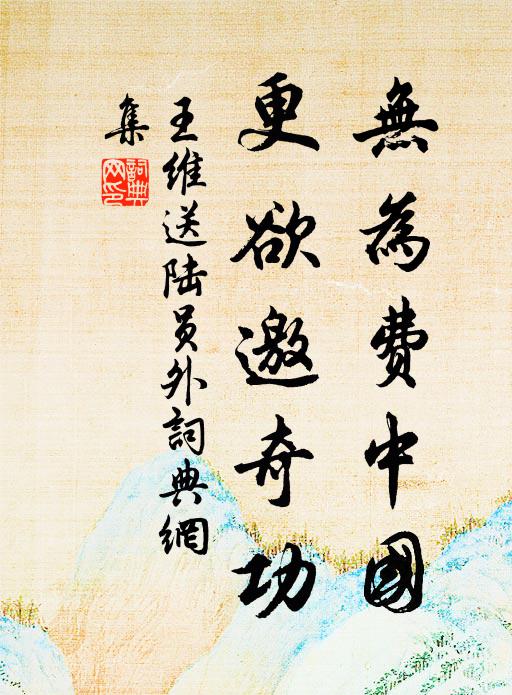 無為費中國
更欲邀奇功
王維送陆员外詞典網
集
詞典
网印